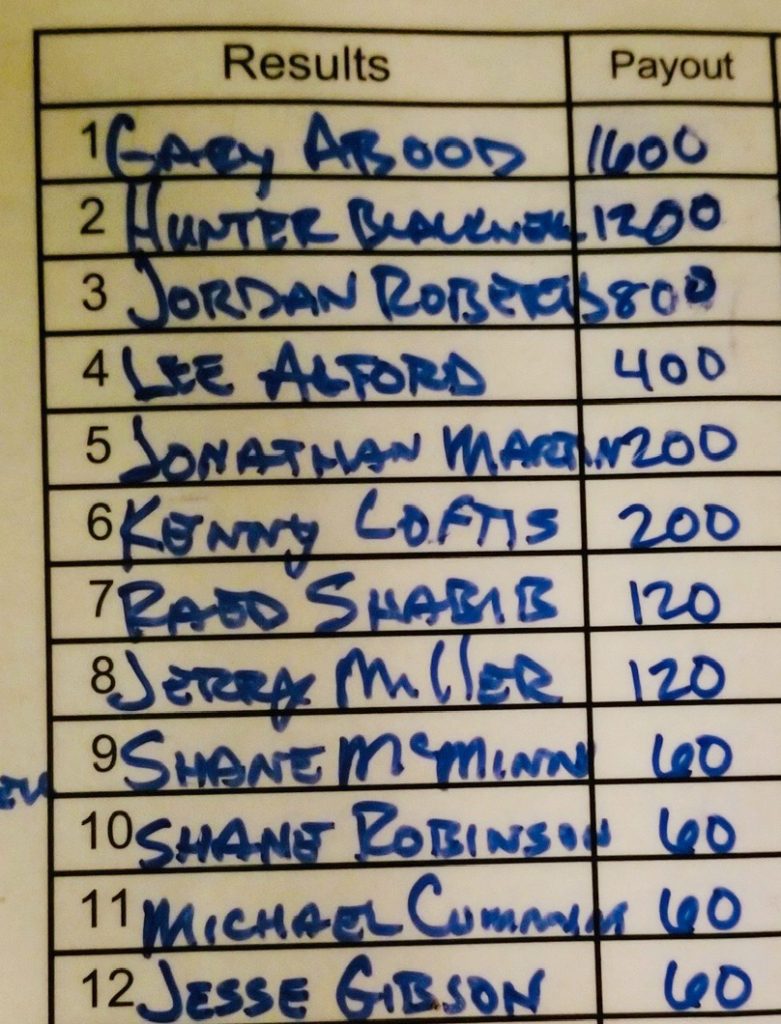 Results Payout
1 GARY ABOOD 1600
2 HUNTER 1200
3 JORDAN ROBERTS 800
4 LEE ALFORD 400
5 JONATHAN MARTIN 200
6 KENNY LOFTIS 200
7 RAED SHABIB 120
8 JERRY MILLER 120
9 SHANE McMINN 60
10 SHANE ROBINSON 60
11 MICHAEL 60
12 JESSE GIBSON 60